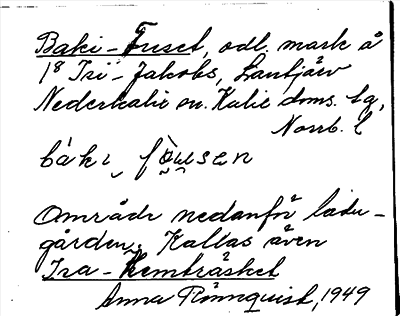 Baki-Fuset, odl. mark å
1⁸ Isi-Jakobs, Lantjärv
Nederkalix sn. Kalix doms. tg,
Norrb. l
båkɩ
Område nedanför ladu-
gården. Kallas även
Isa-Hemträsket
Anna Rönnquist, 1949